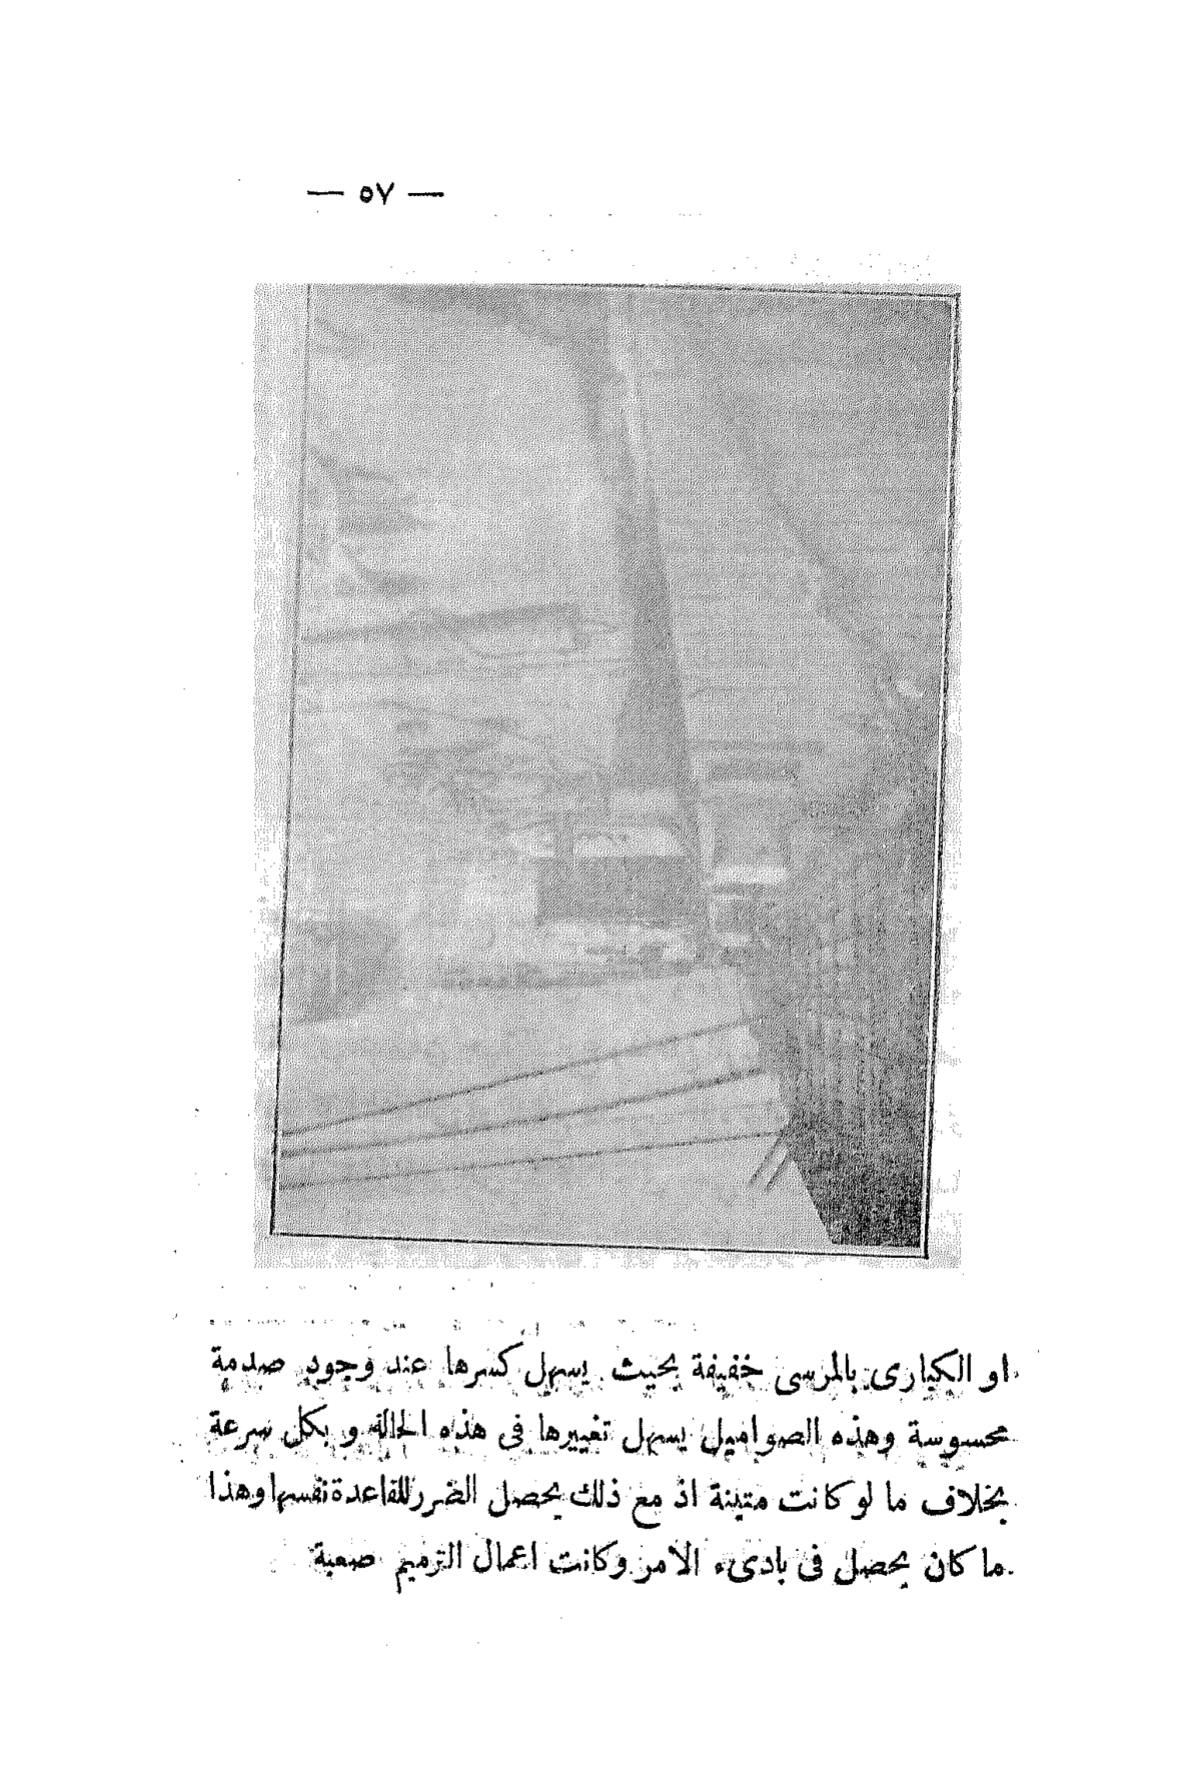 — ٥٧ —
او الكبارى بالمرسى خفيفة بحيث يسهل كسرها عند وجود صدمة
محسوسة وهذه الصواميل يسهل تغييرها فى هذه الحالة و بكل سرعة
بخلاف ما لو كانت متينة اذ مع ذلك يحصل الضرر للقاعدة نفسها وهذا
ما كان يحصل فى بادىء الامر وكانت اعمال الترميم صعبة